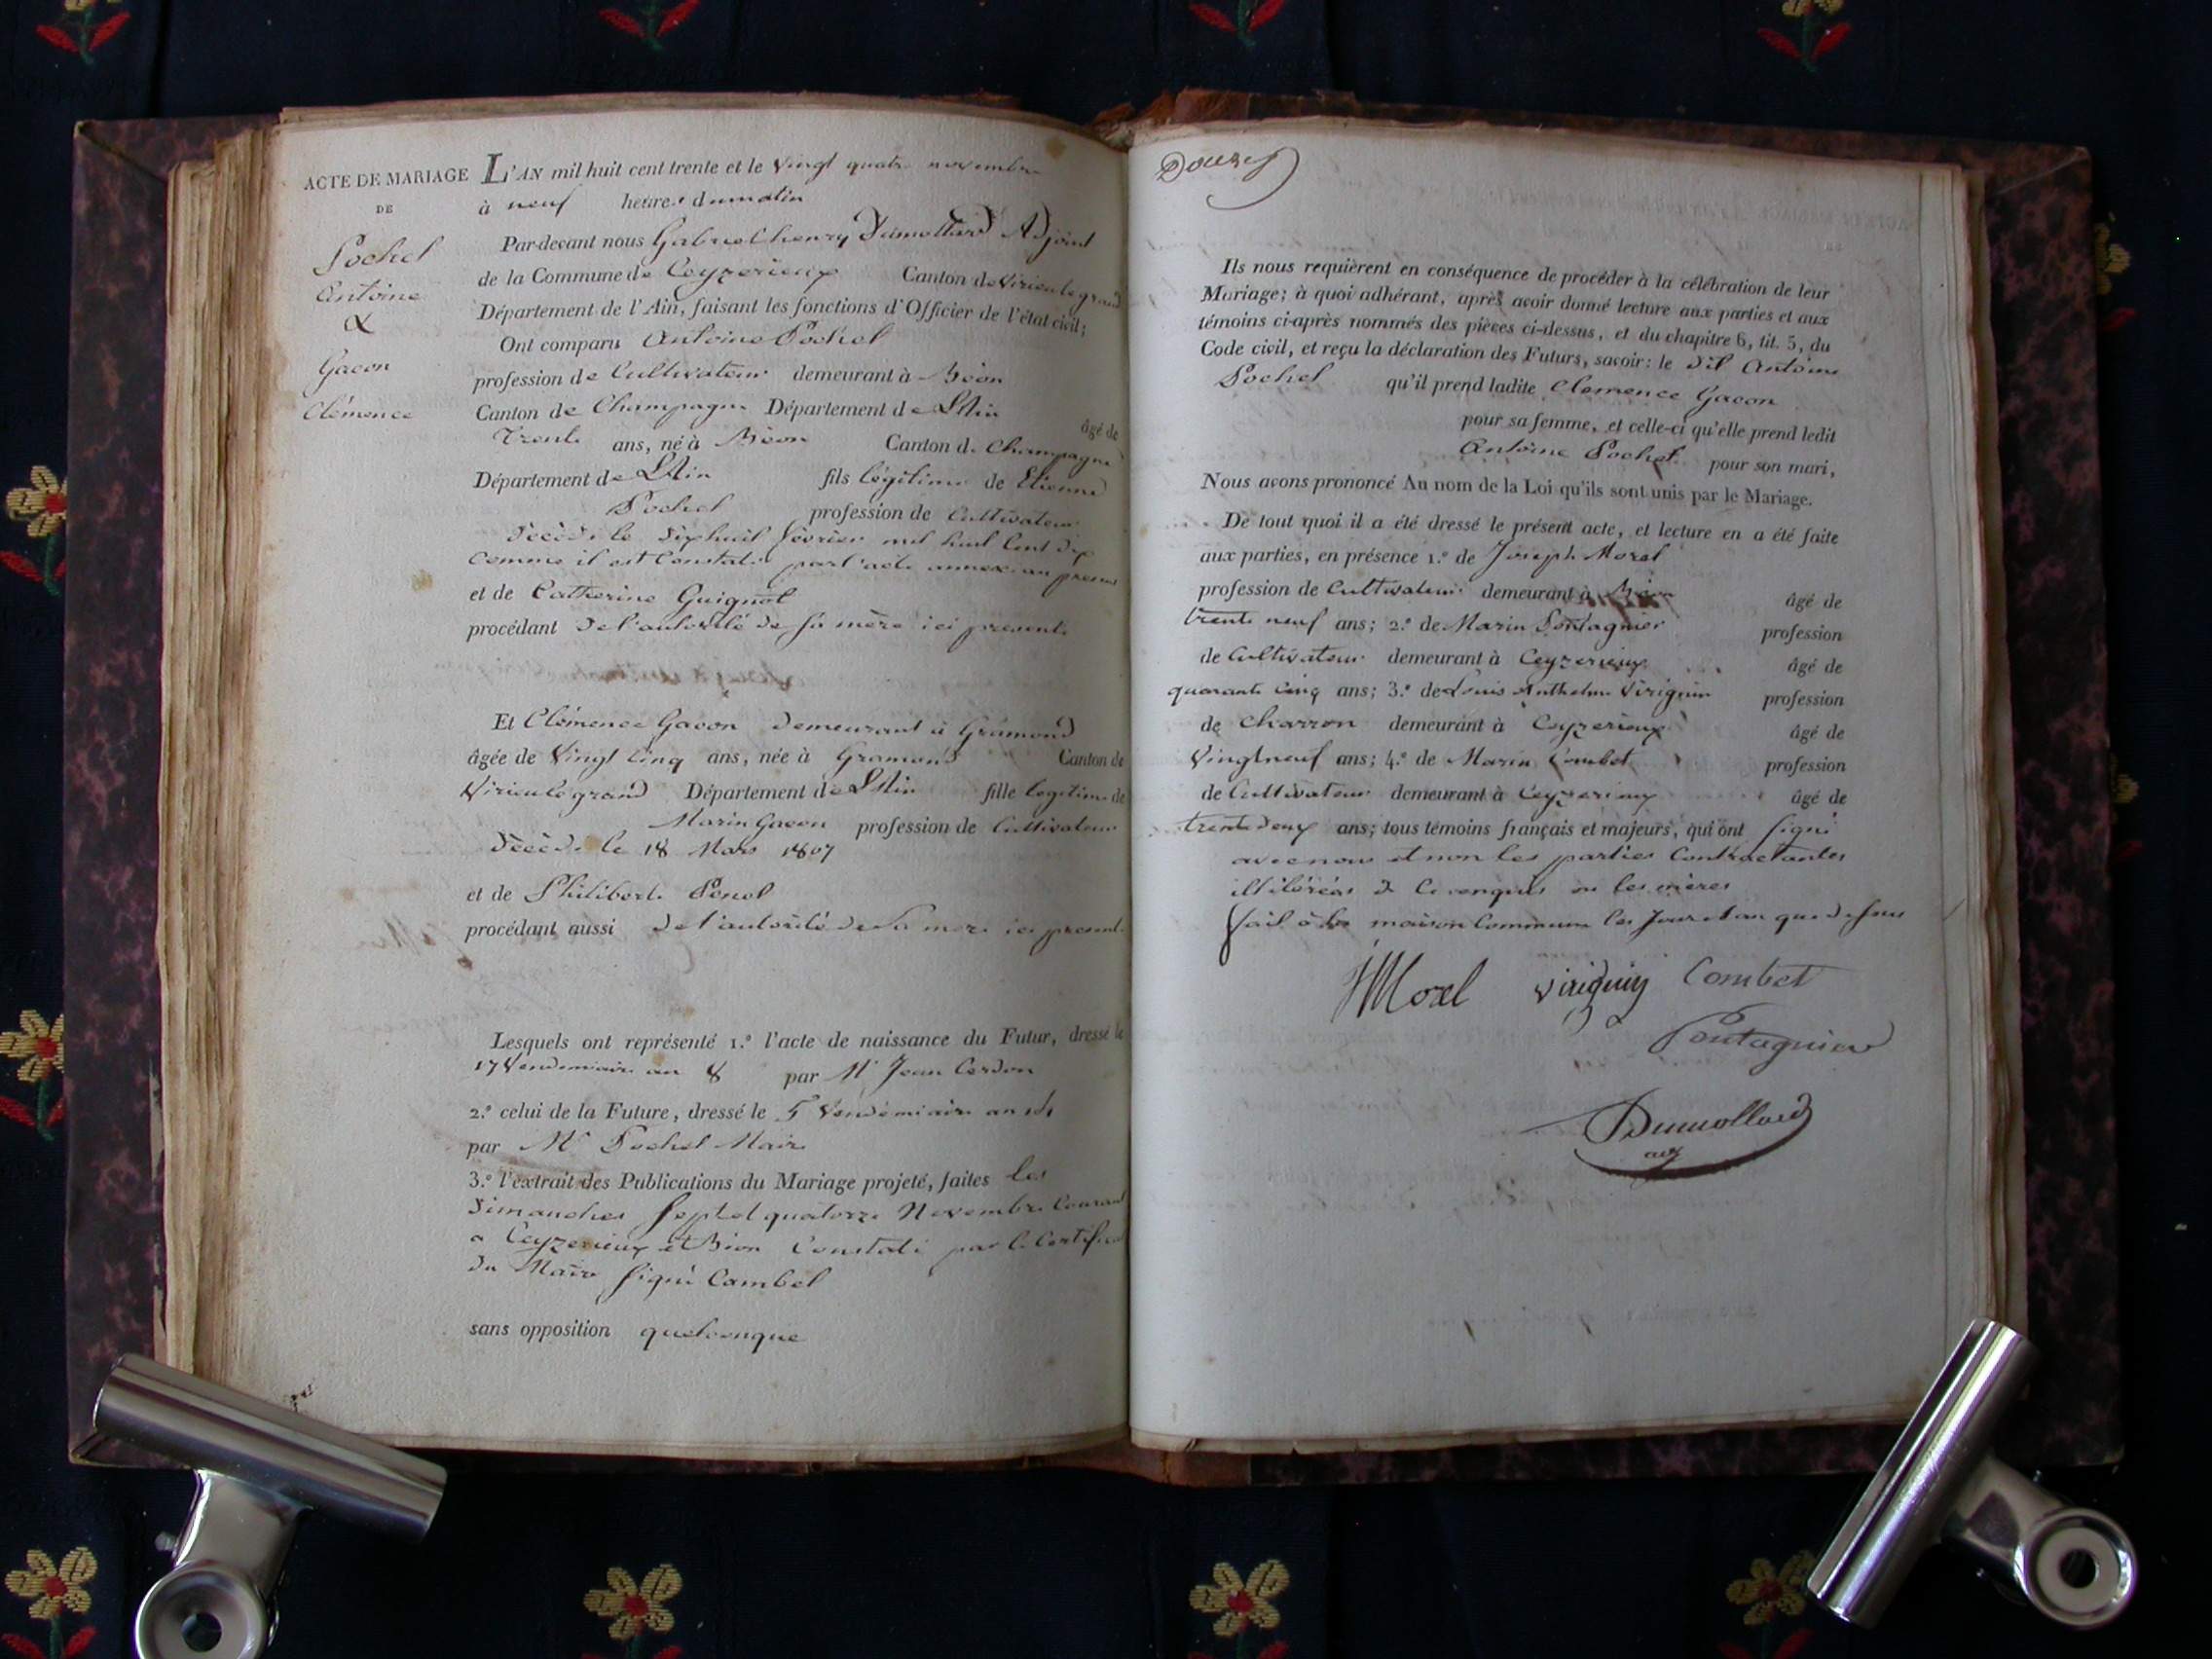 ACTE DE MARIAGE
DE
Pochet
Antoine
&
Gacon
Clémence
L'AN mil huit cent trente et le vingt quatre novembre
à neuf heures du matin
Par-devant nous Gabriel henry Dumollard Adjoint
de la Commune de Ceyzerieux Canton de Virieu le grand
Département de l'Ain, faisant les fonctions d'Officier de l'état civil;
Ont comparu Antoine Pochet
profession de Cultivateur demeurant à Béon
Canton de Champagne Département de L'Ain âgé de
Trente ans, né à Béon Canton de Champagne
Département de L'Ain fils légitime de Etienne
Pochet profession de Cultivateur
décédé le dix huit février mil huit Cent dix
comme il est Constaté par l'acte annexé au présent
et de Catherine Guignot
procédant de l'autorité de sa mère ici présente
Et Clémence Gacon demeurant à Gramond
âgée de Vingt Cinq ans, née à Gramond Canton de
Virieu le grand Département de L'Ain fille legitime de
Marin Gacon profession de Cultivateur
décédé le 18 Mars 1807
et de Philiberte Penot
procédant aussi de l'autorité de sa mere ici present
Lesquels ont représenté 1.º l'acte de naissance du Futur, dressé le
17 Vendemiaire an 8 par Mr Jean Cerdon
2.º celui de la Future, dressé le 5 Vendémiaire an 14
par Mr Pochet Maire
3.º l'extrait des Publications du Mariage projeté, faites les
dimanches sept et quatorze Novembre Courant
a Ceyzerieux et Béon Constaté par le Certificat
du Maire signé Cambet
sans opposition quelconque
Ils nous requièrent en conséquence de procéder à la célébration de leur
Mariage; à quoi adhérant, après avoir donné lecture aux parties et aux
témoins ci-après nommés des pièces ci-dessus, et du chapitre 6, tit. 5, du
Code civil, et reçu la déclaration des Futurs, savoir: le dit Antoine
Pochet qu'il prend ladite Clemence Gacon
pour sa femme, et celle-ci qu'elle prend ledit
Antoine Pochet pour son mari,
Nous avons prononcé Au nom de la Loi qu'ils sont unis par le Mariage.
De tout quoi il a été dressé le présent acte, et lecture en a été faite
aux parties, en présence 1.º de Joseph Morel
profession de Cultivateur demeurant à Béon âgé de
trente neuf ans; 2.º de Marin Pontagnier profession
de Cultivateur demeurant à Ceyzerieux âgé de
quarante cinq ans; 3.º de Louis Anthelme Viriguin profession
de Charron demeurant à Ceyzerieux âgé de
Vingt neuf ans; 4.º de Marin Combet profession
de Cultivateur demeurant à Ceyzerieux âgé de
trente deux ans; tous témoins français et majeurs, qui ont signé
avec nous et non les parties Contractantes
illitérées de ce enquis ni les mères
fait à la maison Commune les Jour et an que dessus
Morel Combet
Pontagnier
Dumollard
adj